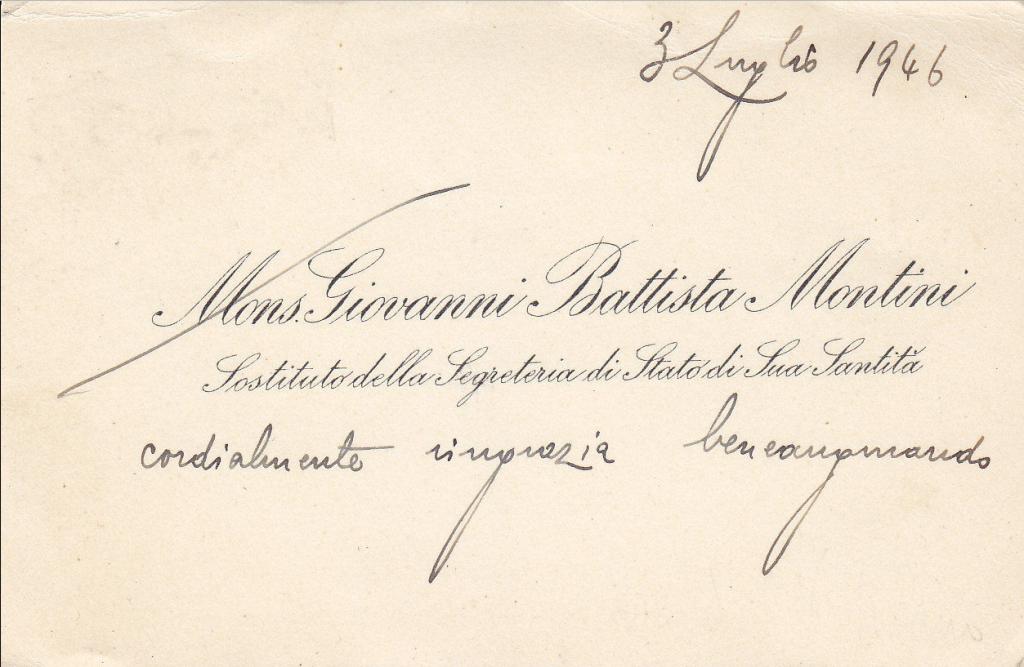 3 Luglio 1946
Mons. Giovanni Battista Montini
Sostituto della Segreteria di Stato di Sua Santità
cordialmente ringrazia beneaugurando